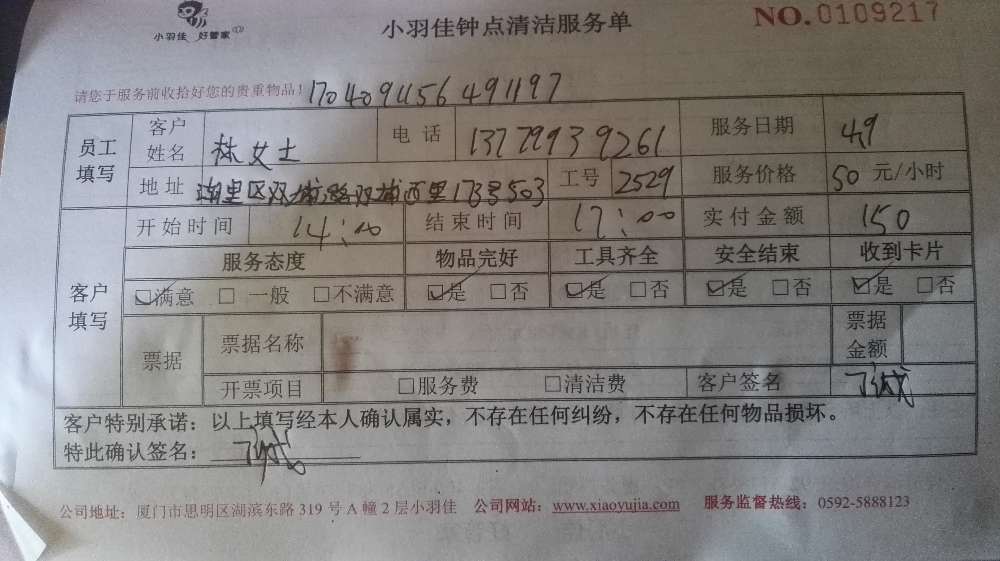 小羽佳 好管家
小羽佳钟点清洁服务单
NO.0109217
请您于服务前收拾好您的贵重物品! 170409115649 1197
员工填写 客户姓名 林女士 电话 13779939261 服务日期 4.9
地址 湖里区双浦路双浦西里173号503 工号 2529 服务价格 50 元/小时
客户填写 开始时间 14:00 结束时间 17:00 实付金额 150
服务态度 物品完好 工具齐全 安全结束 收到卡片
☑满意 □ 一般 □不满意 ☑是 □否 ☑是 □否 ☑是 □否 ☑是 □否
票据 票据名称 票据金额
开票项目 □服务费 □清洁费 客户签名
客户特别承诺：以上填写经本人确认属实，不存在任何纠纷，不存在任何物品损坏。
特此确认签名：
公司地址：厦门市思明区湖滨东路 319 号 A 幢 2 层小羽佳 公司网站：www.xiaoyujia.com 服务监督热线：0592-5888123